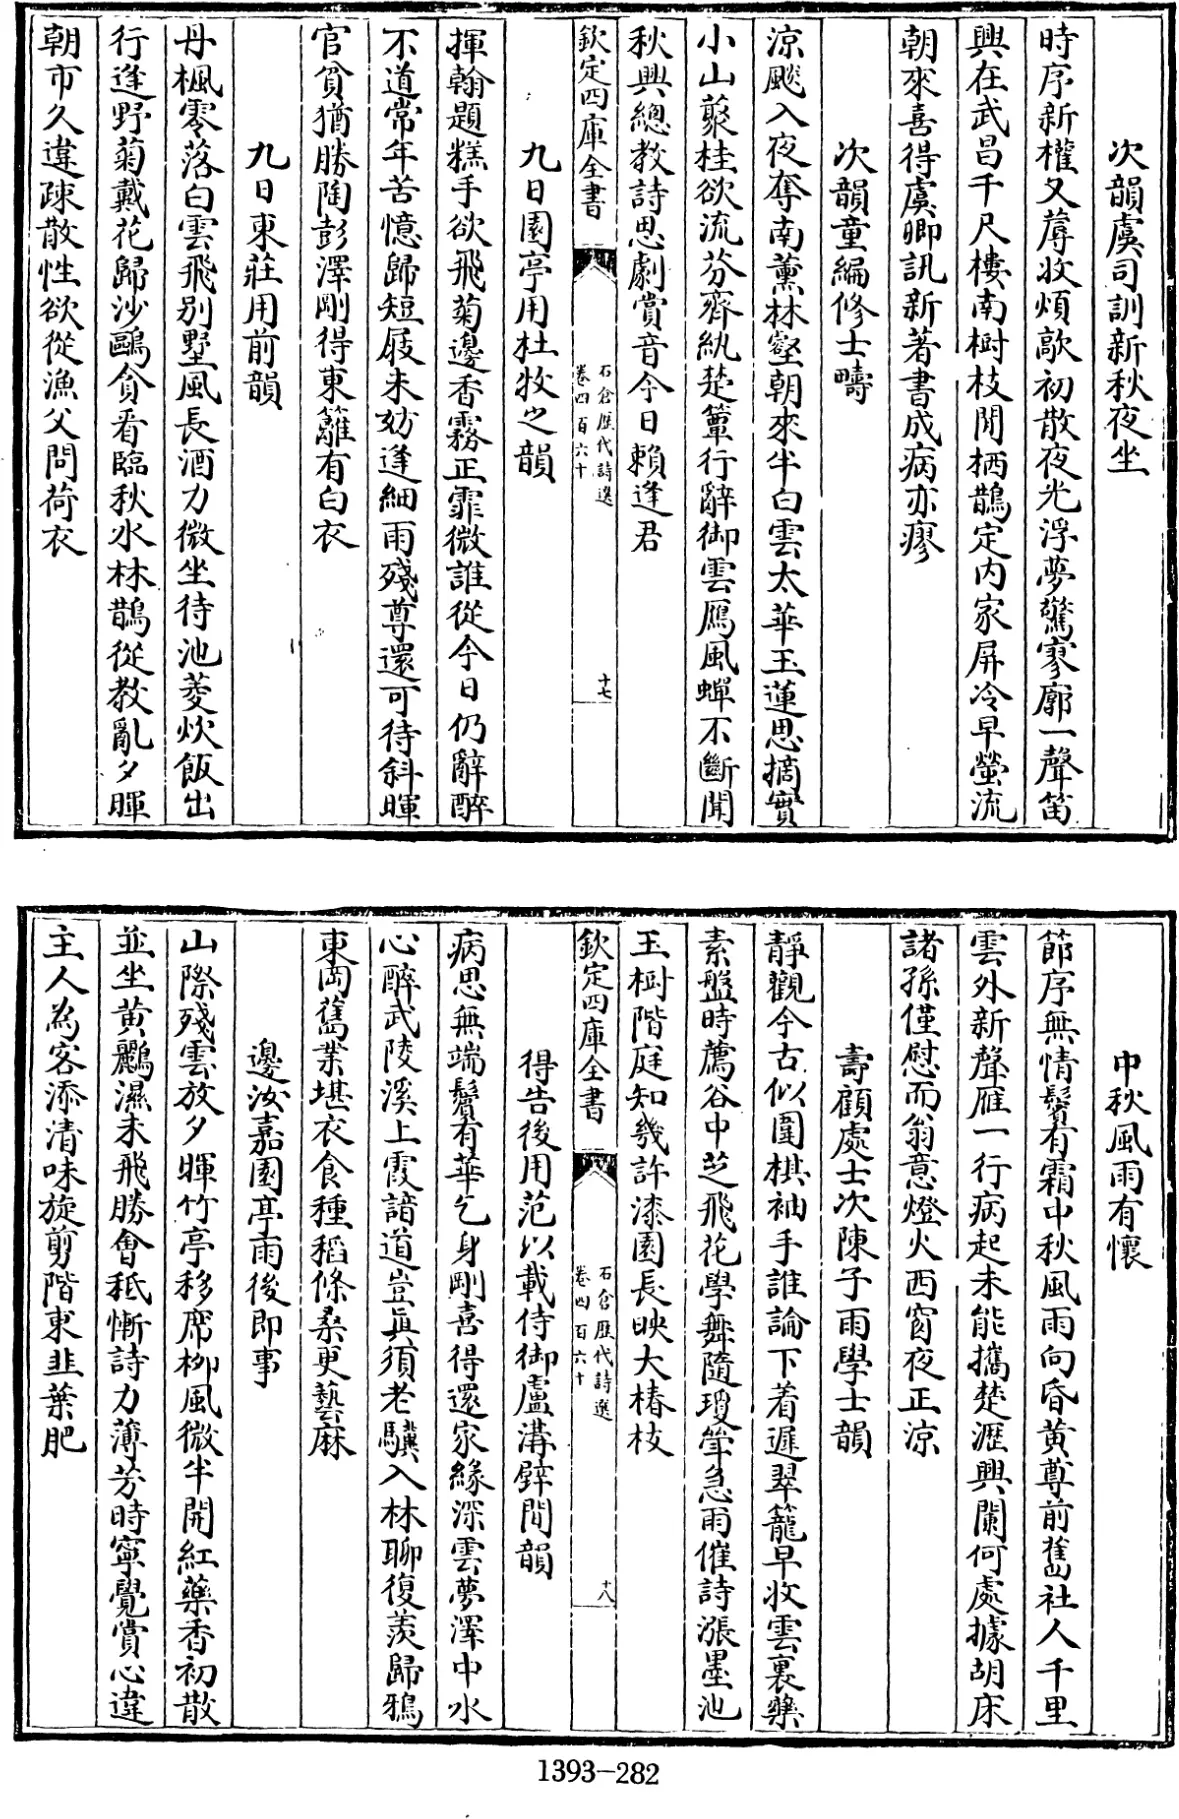 次韻虞司訓新秋夜坐
時序新權又蓐收煩歊初散夜光浮夢驚寥廓一聲笛
興在武昌千尺樓南樹枝閒栖鵲定內家屏冷早螢流
朝來喜得虞卿訊新著書成病亦瘳
次韻童編修士疇
涼颷入夜奪南薰林壑朝來半白雲太華玉蓮思摘實
小山藂桂欲流芬齊紈楚簟行辭御雲鴈風蟬不斷聞
秋興總教詩思劇賞音今日賴逢君
欽定四庫全書
石倉歷代詩選
卷四百六十
十七
九日園亭用杜牧之韻
揮翰題糕手欲飛菊邊香霧正霏微誰從今日仍辭醉
不道常年苦憶歸短屐未妨逢細雨殘尊還可待斜暉
官貧猶勝陶彭澤剛得東籬有白衣
九日東莊用前韻
丹楓零落白雲飛別墅風長酒力微坐待池菱炊飯出
行逢野菊戴花歸沙鷗貪看臨秋水林鵲從教亂夕暉
朝市久違疎散性欲從漁父問荷衣
中秋風雨有懷
節序無情鬢有霜中秋風雨向昏黄尊前舊社人千里
雲外新聲雁一行病起未能攜楚瀝興闌何處據胡床
諸孫僅慰而翁意燈火西窗夜正涼
壽顧處士次陳子雨學士韻
靜觀今古似圍棋袖手誰論下着遲翠籠早收雲裏藥
素盤時薦谷中芝飛花學舞隨瓊斝急雨催詩漲墨池
玉樹階庭知幾許漆園長映大椿枝
欽定四庫全書
石倉歷代詩選
卷四百六十
十八
得告後用范以載侍御盧溝壁間韻
病思無端鬢有華乞身剛喜得還家緣深雲夢澤中水
心醉武陵溪上霞諳道豈真須老驥入林聊復羨歸鴉
東岡舊業堪衣食種稻條桑更藝麻
邊汝嘉園亭雨後即事
山際殘雲放夕暉竹亭移席柳風微半開紅藥香初散
並坐黄鸝濕未飛勝會秪慚詩力薄芳時寧覺賞心違
主人為客添清味旋剪階東韭葉肥
1393-282